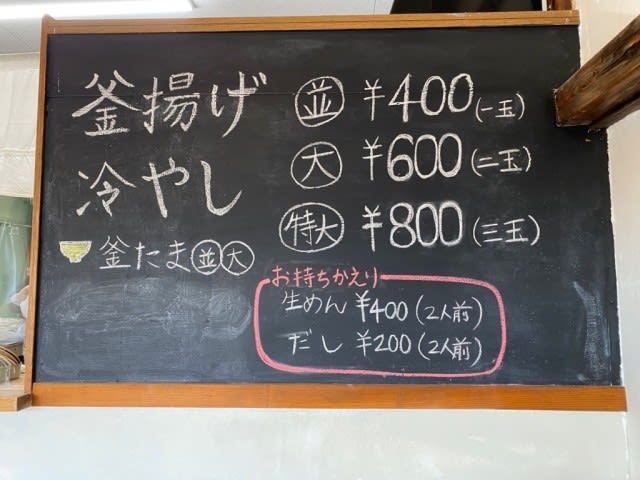 釜揚げ 並 ¥400(一玉)
冷やし 大 ¥600(二玉)
特大 ¥800(三玉)
釜たま 並 大
お持ちかえり
生めん ¥400(2人前)
だし ¥200(2人前)